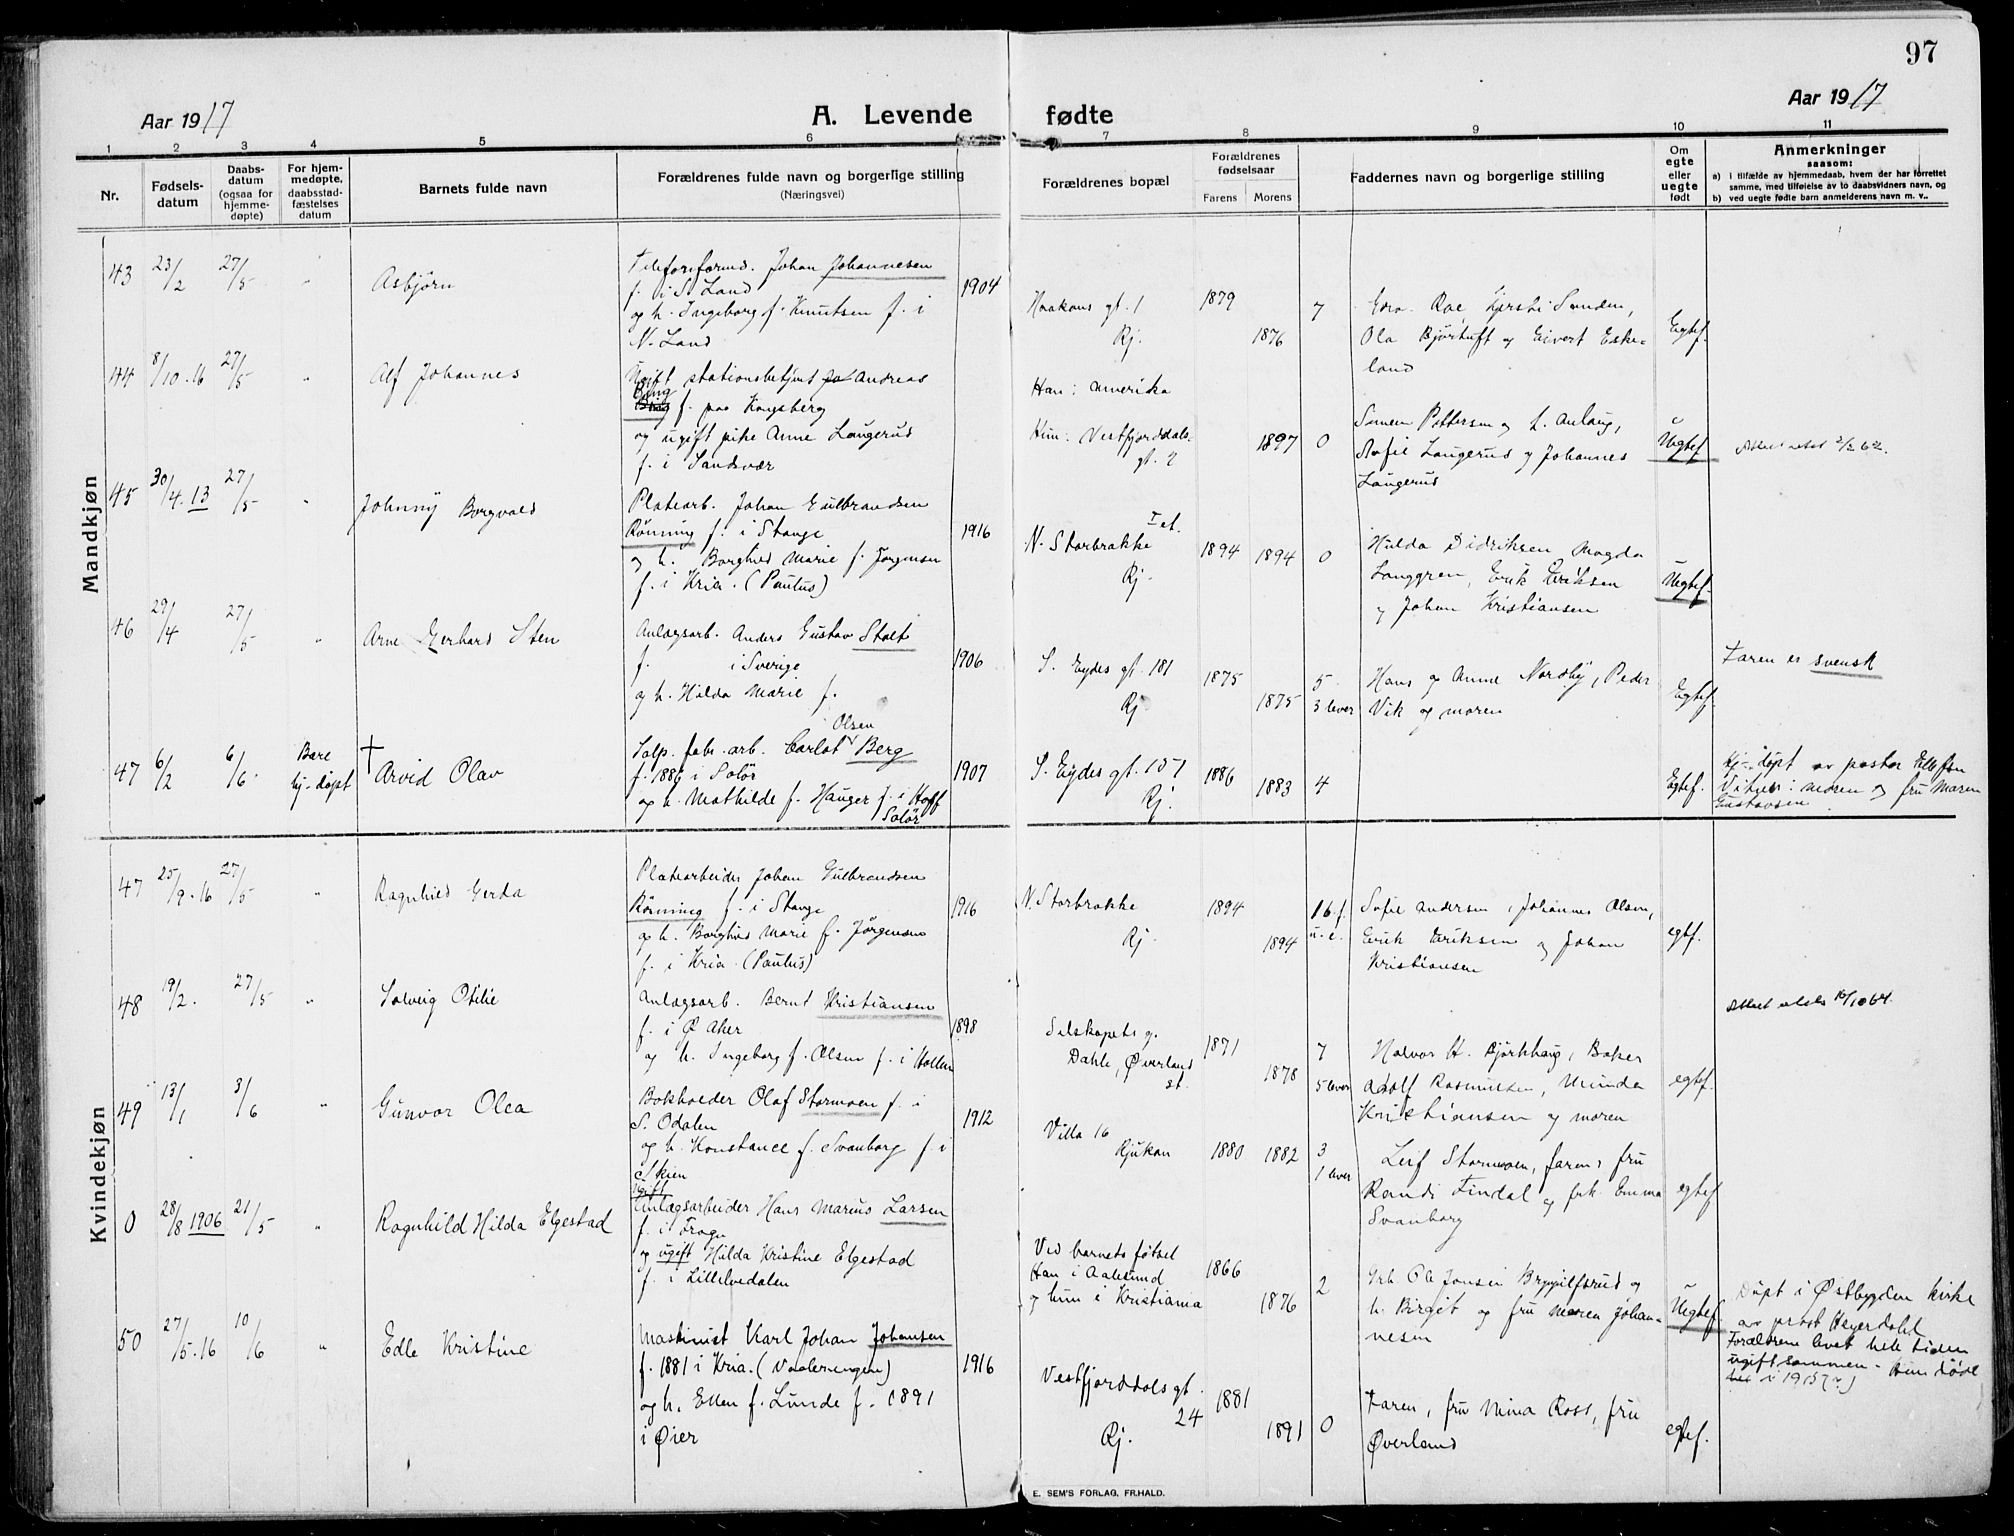 97
Aar 1917
A. Levende fødte
Aar 1917
1 2 3 4 5 6 7 8 9 10 11
Nr.
Fødsels-
datum
Daabs-
datum
(ogsaa for
hjemme-
døpte)
For hjem-
medøpte,
daabsstad-
fæstelses
datum
Barnets fulde navn
Forældrenes fulde navn og borgerlige stilling
(Næringsvei)
Forældrenes bopæl
Forældrenes
fødselsaar
Farens Morens
Faddernes navn og borgerlige stilling
Om
egte
eller
uegte
født
Anmerkninger
saasom:
a) i tilfælde av hjemmedaab, hvem der har forrettet
samme, med tilføielse av to daabsvidners navn, og
b) ved uegte fødte barn anmelderens navn m. v..
Mandkjøn
43 23/2 27/5 " Asbjørn
Johan Johannesen
f. i S. Land
og h. Ingeborg f. Knutsen f. i
N. Land
1904
Haakons gt. 1
Rj.
1879
1876
7
Sunden,
Ola Bjørtuft og Eivert Eske-
land
Egtef.
44 8/10.16 27/5 " Alf Johannes
Ugift stationsbetjent Andreas
Bing
f. paa Kongsberg
og ugift pike Anne Langerud
f. i Sandsvær
Han: Amerika
Hun: Vestfjorddals-
gt. 2
1897
0
Pettersen og h. Anlaug,
Langerud og Johannes
Langerud
Uegtef.
45 30/4.13 27/5 " Johnny Borgvald
Platearb. Johan Gulbrandsen
Rønning f. i Stange
og h. Borghild Marie f. Jørgensen
f. i Kria. (Paulus)
1916
N. Storbrakke I et.
Rj.
1894
1894
0
Hulda Didriksen, Magda
Langgren, Erik Eriksen
og Johan Kristiansen
Uegtef.
46 29/4 27/5 " Arne Gerhard Sten
Anlægsarb. Anders Gustav Stolt
f. i Sverige
og h. Hilda Marie f.
1906
S. Eydes gt. 181
Rj.
1875
1875
5
3 lever
Hans og Anne Nordby, Peder
Vik og moren
Egtef.
Faren er svensk
47 6/2 6/6. Bare
hj-døpt † Arvid Olav
Salp. fabr. arb. Carlot Olsen Berg
f. 1886 i Solør
og h. Mathilde f. Hauger f. i Hoff
Solør
1907
S. Eydes gt. 107
Rj.
1886
1883
4
Egtef.
Hj-døpt av pastor Ellefsen
Vitner: moren og fru Maren
Gustavsen
Kvindekjøn
47 25/9.16 27/5 " Ragnhild Gerda
Platearbeider Johan Gulbrandsen
Rønning f. i Stange
og h. Borghild Marie f. Jørgensen
f. i Kria. (Paulus)
1916
N. Storbrakke
Rj.
1894
1894
1 6. f.
u. e.
Sofie Andersen, Johannes Olsen,
Erik Eriksen og Johan
Kristiansen
egtf.
48 19/2. 27/5 " Solveig Otilie
Anlægsarb. Bernt Kristiansen
f. i Ø Aker
og h. Ingeborg f. Olsen f. i Hollen
1898
Selskapets g.
Dahle, Øverland
st.
1871
1878
7
5 lever
Halvor H. Bjørkhaug, Baker
Adolf Rasmussen, Minda
Kristiansen og moren
egtef.
49 13/1 3/6 " Gunvor Olea
Bokholder Olaf Stormoen f. i
S. Odalen
og h. Konstance f. Svanborg f. i
Skien
1912
Villa 16
Rjukan
1880
1882
3
1 lever
Leif Stormoen, faren, fru
Randi Findal og frk. Emma
Svanborg
egtef.
0 28/8 1906 21/5 " Ragnhild Hilda Elgestad
Ugift
Anlægsarbeider Hans Marius Larsen
f. i Frogn
og ugift Hilda Kristine Elgestad
f. i Lillelvedalen
Ved barnets fødsel
Han i Aalesund
og hun i Kristiania
1866
1876
2
Ole Jonsen og
h. Birgit og fru Maren Johan-
nesen
Uegtef.
Døpt i Østbygden kirke
av prost Heyerdahl
Forældrene levet hele tiden
ugift sammen - Hun døde
i 1915
50 27/5.16 10/6 " Edle Kristine
Maskinist Karl Johan Johansen
f. 1881 i Kria. (Vaalerengen)
og h. Ellen f. Lunde f. 1891
i Øier
1916
Vestfjorddals gt.
24
Rj.
1881
1891
0
Faren, fru Mina Ross, fru
Øverland
egtef.
E. SEM'S FORLAG, FR.HALD.